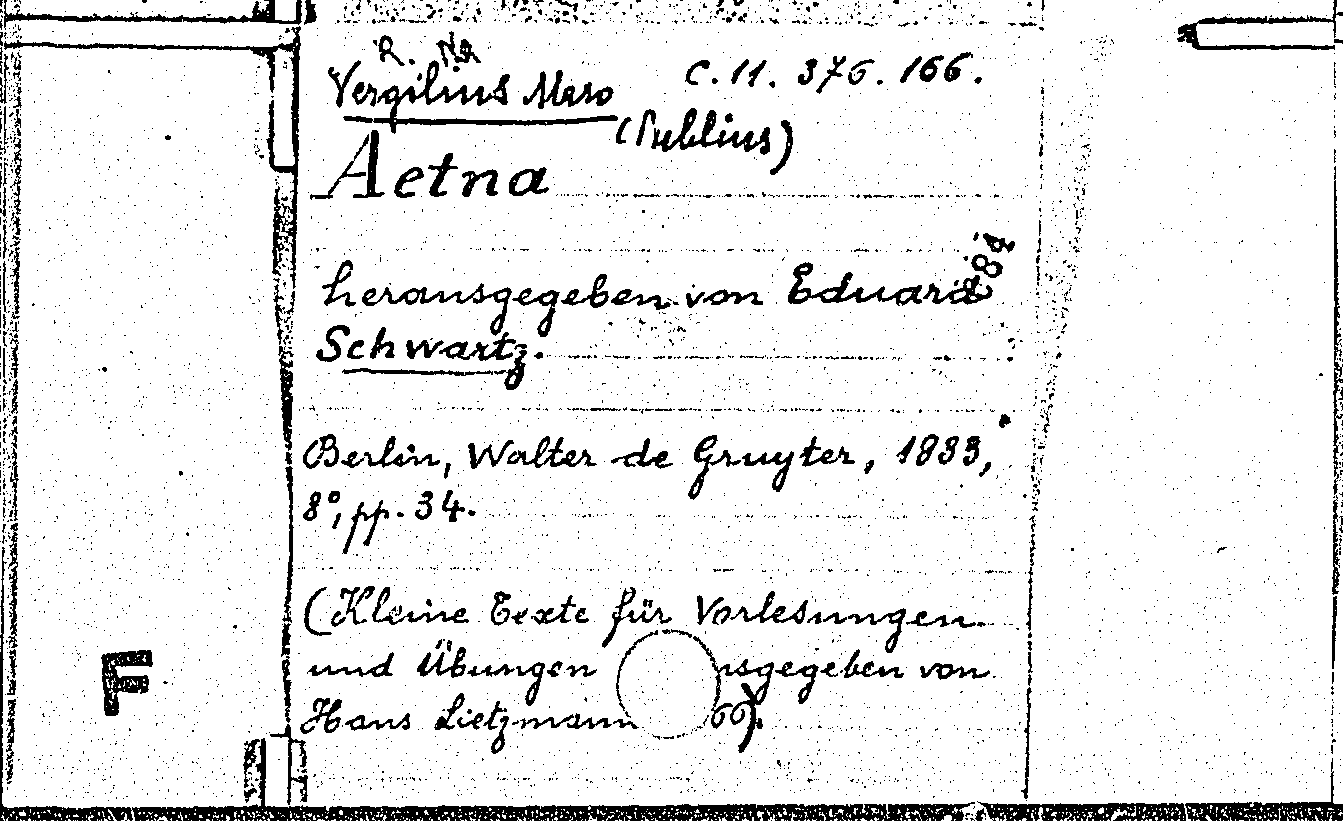 R. Na
Vergilius Maro C. 11. 376. 166.
(Publius)
Aetna
herausgegeben von Eduard
Schwartz.
Berlin, Walter de Gruyter, 1933,
8°, pp. 34.
(Kleine Texte für Vorlesungen
und Übungen nsgegeben von
Hans Lietzmann 66).
F